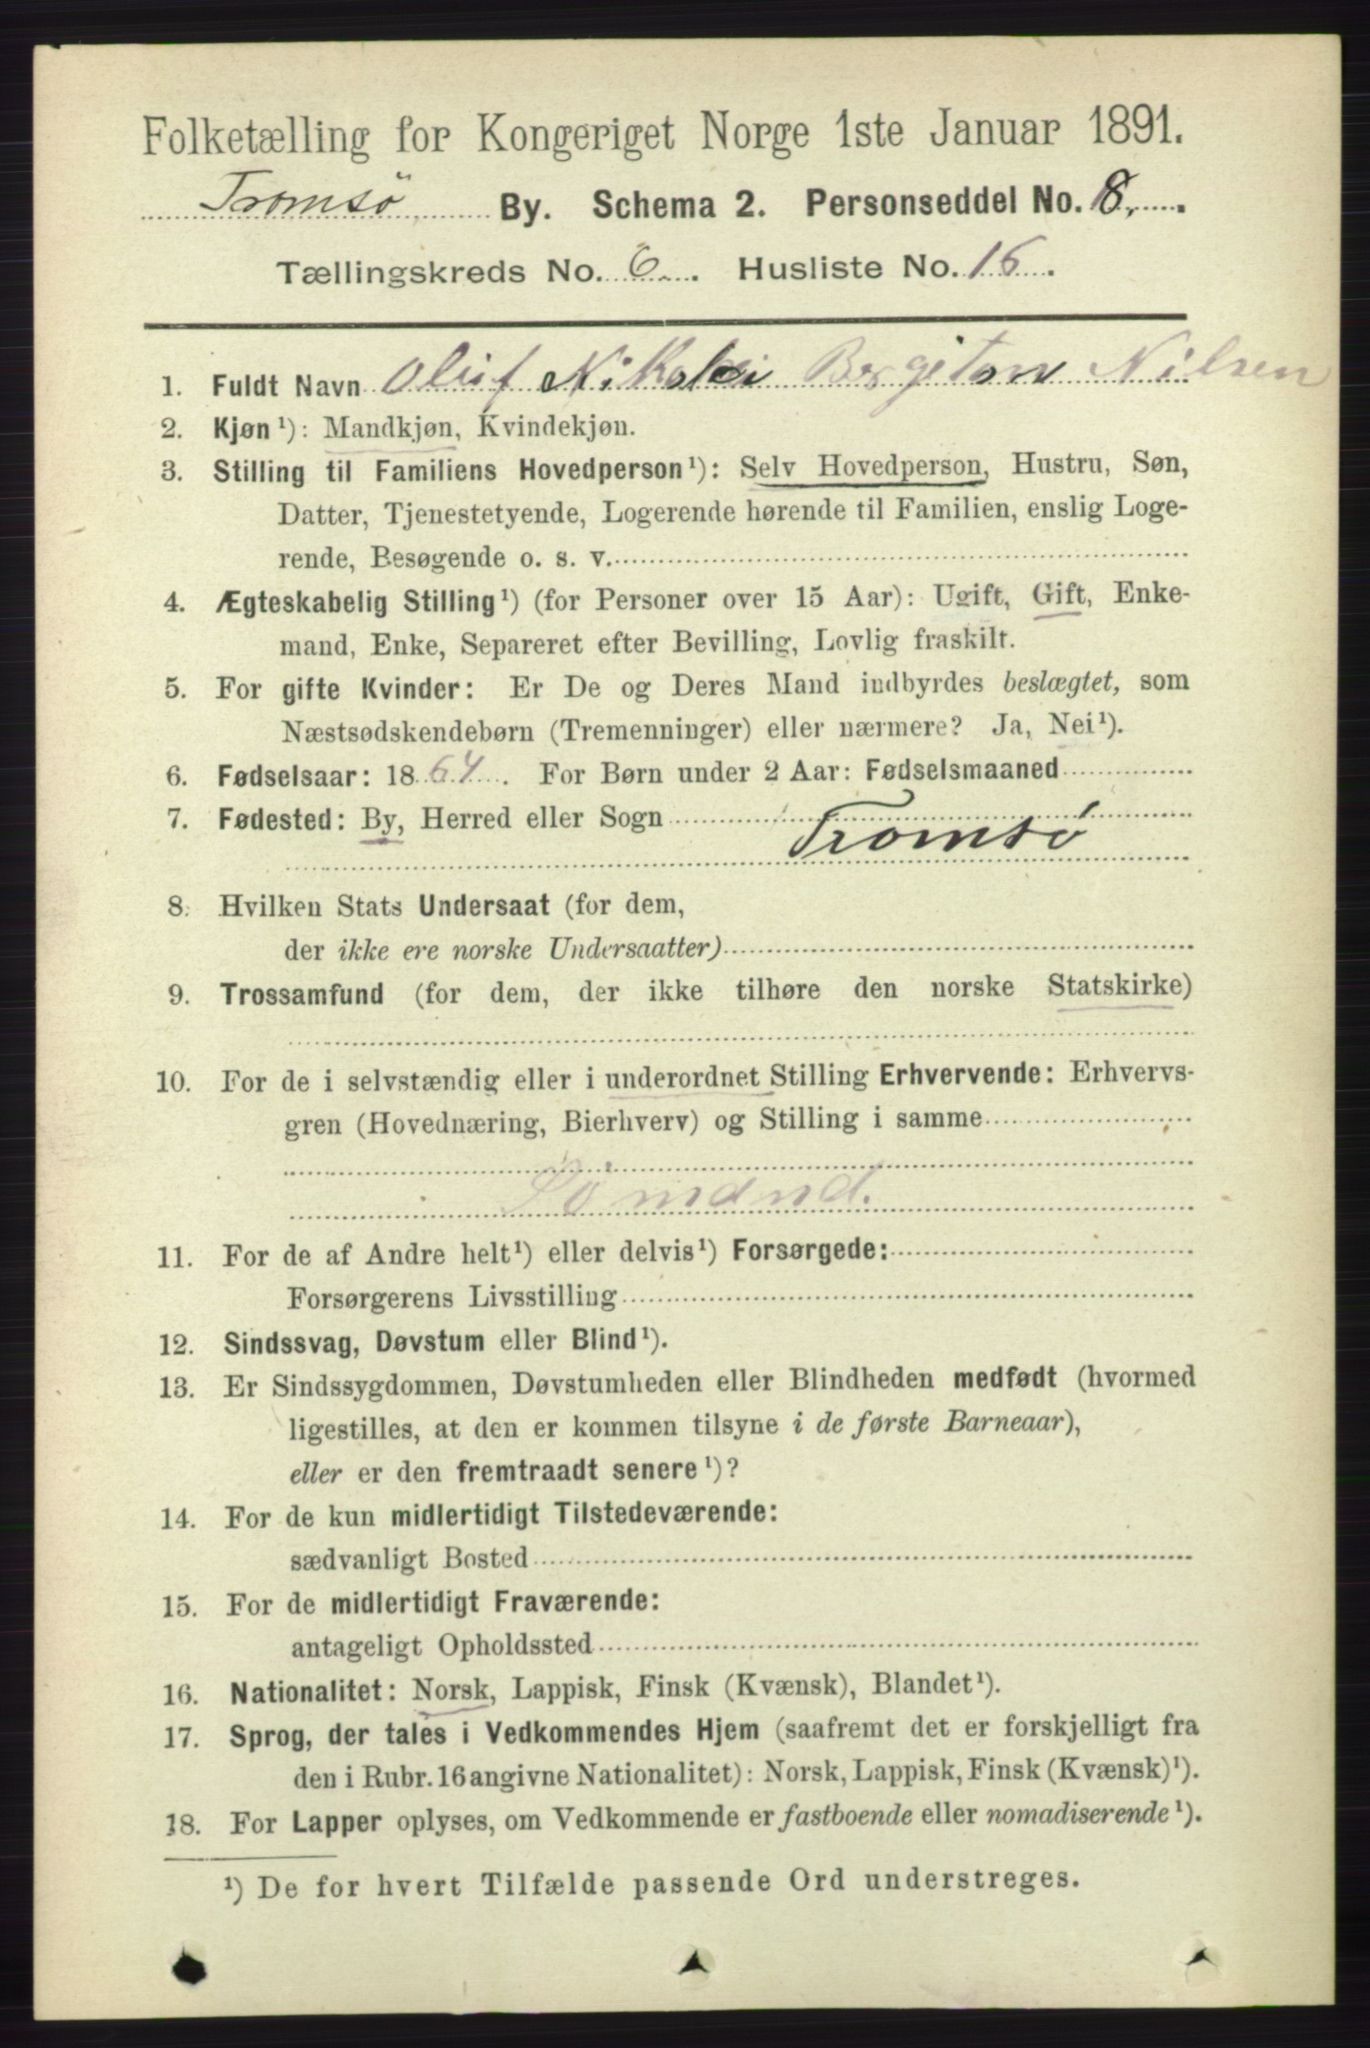 Folketælling for Kongeriget Norge 1ste Januar 1891.
Tromsø By. Schema 2. Personseddel No. 8.
Tællingskreds No. 6. Husliste No. 16.
1. Fuldt Navn Oluf Nikolai Bergiton Nilsen
2. Kjøn¹): Mandkjøn, Kvindekjøn.
3. Stilling til Familiens Hovedperson¹): Selv Hovedperson, Hustru, Søn,
Datter, Tjenestetyende, Logerende hørende til Familien, enslig Loge-
rende, Besøgende o. s. v.
4. Ægteskabelig Stilling¹) (for Personer over 15 Aar): Ugift, Gift, Enke-
mand, Enke, Separeret efter Bevilling, Lovlig fraskilt.
5. For gifte Kvinder: Er De og Deres Mand indbyrdes beslægtet, som
Næstsødskendebørn (Tremenninger) eller nærmere? Ja, Nei¹).
6. Fødselsaar: 1864. For Børn under 2 Aar: Fødselsmaaned
7. Fødested: By, Herred eller Sogn
Tromsø
8. Hvilken Stats Undersaat (for dem,
der ikke ere norske Undersaatter)
9. Trossamfund (for dem, der ikke tilhøre den norske Statskirke)
10. For de i selvstændig eller i underordnet Stilling Erhvervende: Erhvervs-
gren (Hovednæring, Bierhverv) og Stilling i samme
Sømand.
11. For de af Andre helt¹) eller delvis¹) Forsørgede:
Forsørgerens Livsstilling
12. Sindssvag, Døvstum eller Blind¹).
13. Er Sindssygdommen, Døvstumheden eller Blindheden medfødt (hvormed
ligestilles, at den er kommen tilsyne i de første Barneaar),
eller er den fremtraadt senere¹)?
14. For de kun midlertidigt Tilstedeværende:
sædvanligt Bosted
15. For de midlertidigt Fraværende:
antageligt Opholdssted
16. Nationalitet: Norsk, Lappisk, Finsk (Kvænsk), Blandet¹).
17. Sprog, der tales i Vedkommendes Hjem (saafremt det er forskjelligt fra
den i Rubr. 16 angivne Nationalitet): Norsk, Lappisk, Finsk (Kvænsk)¹).
18. For Lapper oplyses, om Vedkommende er fastboende eller nomadiserende¹).
¹) De for hvert Tilfælde passende Ord understreges.